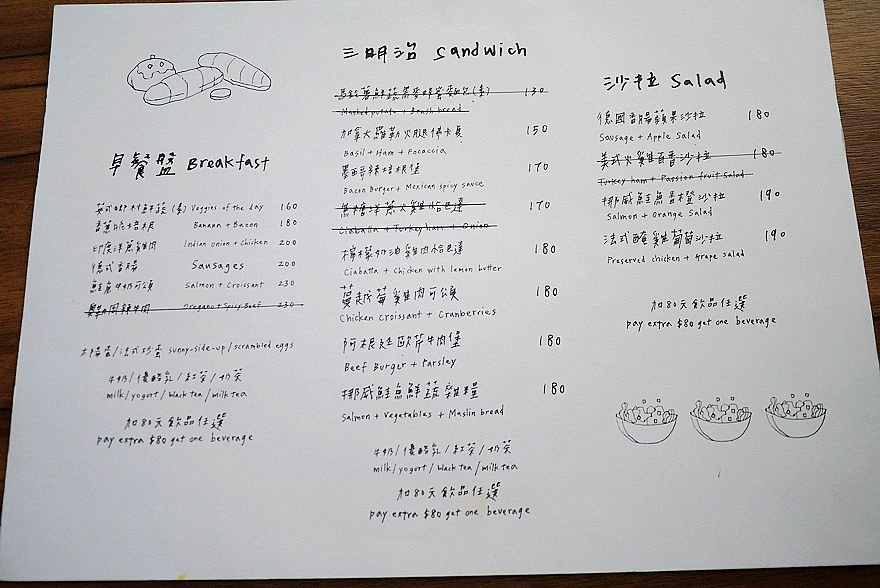 早餐盤 Breakfast
英式鄉村鮮蔬(素) Veggies of the day 160
香蕉脆培根 Banana + Bacon 180
印度洋蔥雞肉 Indian onion + chicken 200
德式香腸 Sausages 200
鮭魚牛奶可頌 Salmon + Croissant 230
辣牛肉 Oregano + Spicy Beef 230
太陽蛋/法式炒蛋 sunny-side-up/scrambled eggs
牛奶/優酪乳/紅茶/奶茶
milk/yogurt/black tea/milk tea
加80元飲品任選
pay extra $80 get one beverage
三明治 Sandwich
馬鈴薯鮮蔬黑麥蜂蜜麵包(素) 130
Mashed potato + Brush bread
加拿大羅勒火腿佛卡夏 150
Basil + Ham + Focaccia
墨西哥辣培根堡 170
Bacon Burger + Mexican spicy sauce
洋蔥火雞恰巴達 170
Ciabatta + Turkey ham + Onion
檸檬奶油雞肉恰巴達 180
Ciabatta + Chicken with lemon butter
蔓越莓雞肉可頌 180
Chicken Croissant + Cranberries
阿根廷歐芹牛肉堡 180
Beef Burger + Parsley
挪威鮭魚鮮蔬雜糧 180
Salmon + Vegetables + Maslin bread
牛奶/優酪乳/紅茶/奶茶
milk/yogurt/black tea/milk tea
加80元飲品任選
pay extra $80 get one beverage
沙拉 Salad
德國香腸蘋果沙拉 180
Sausage + Apple Salad
美式火雞百香沙拉 180
Turkey ham + Passion fruit Salad
挪威鮭魚香橙沙拉 190
Salmon + Orange Salad
法式醃雞葡萄沙拉 190
Preserved chicken + Grape salad
加80元飲品任選
pay extra $80 get one beverage